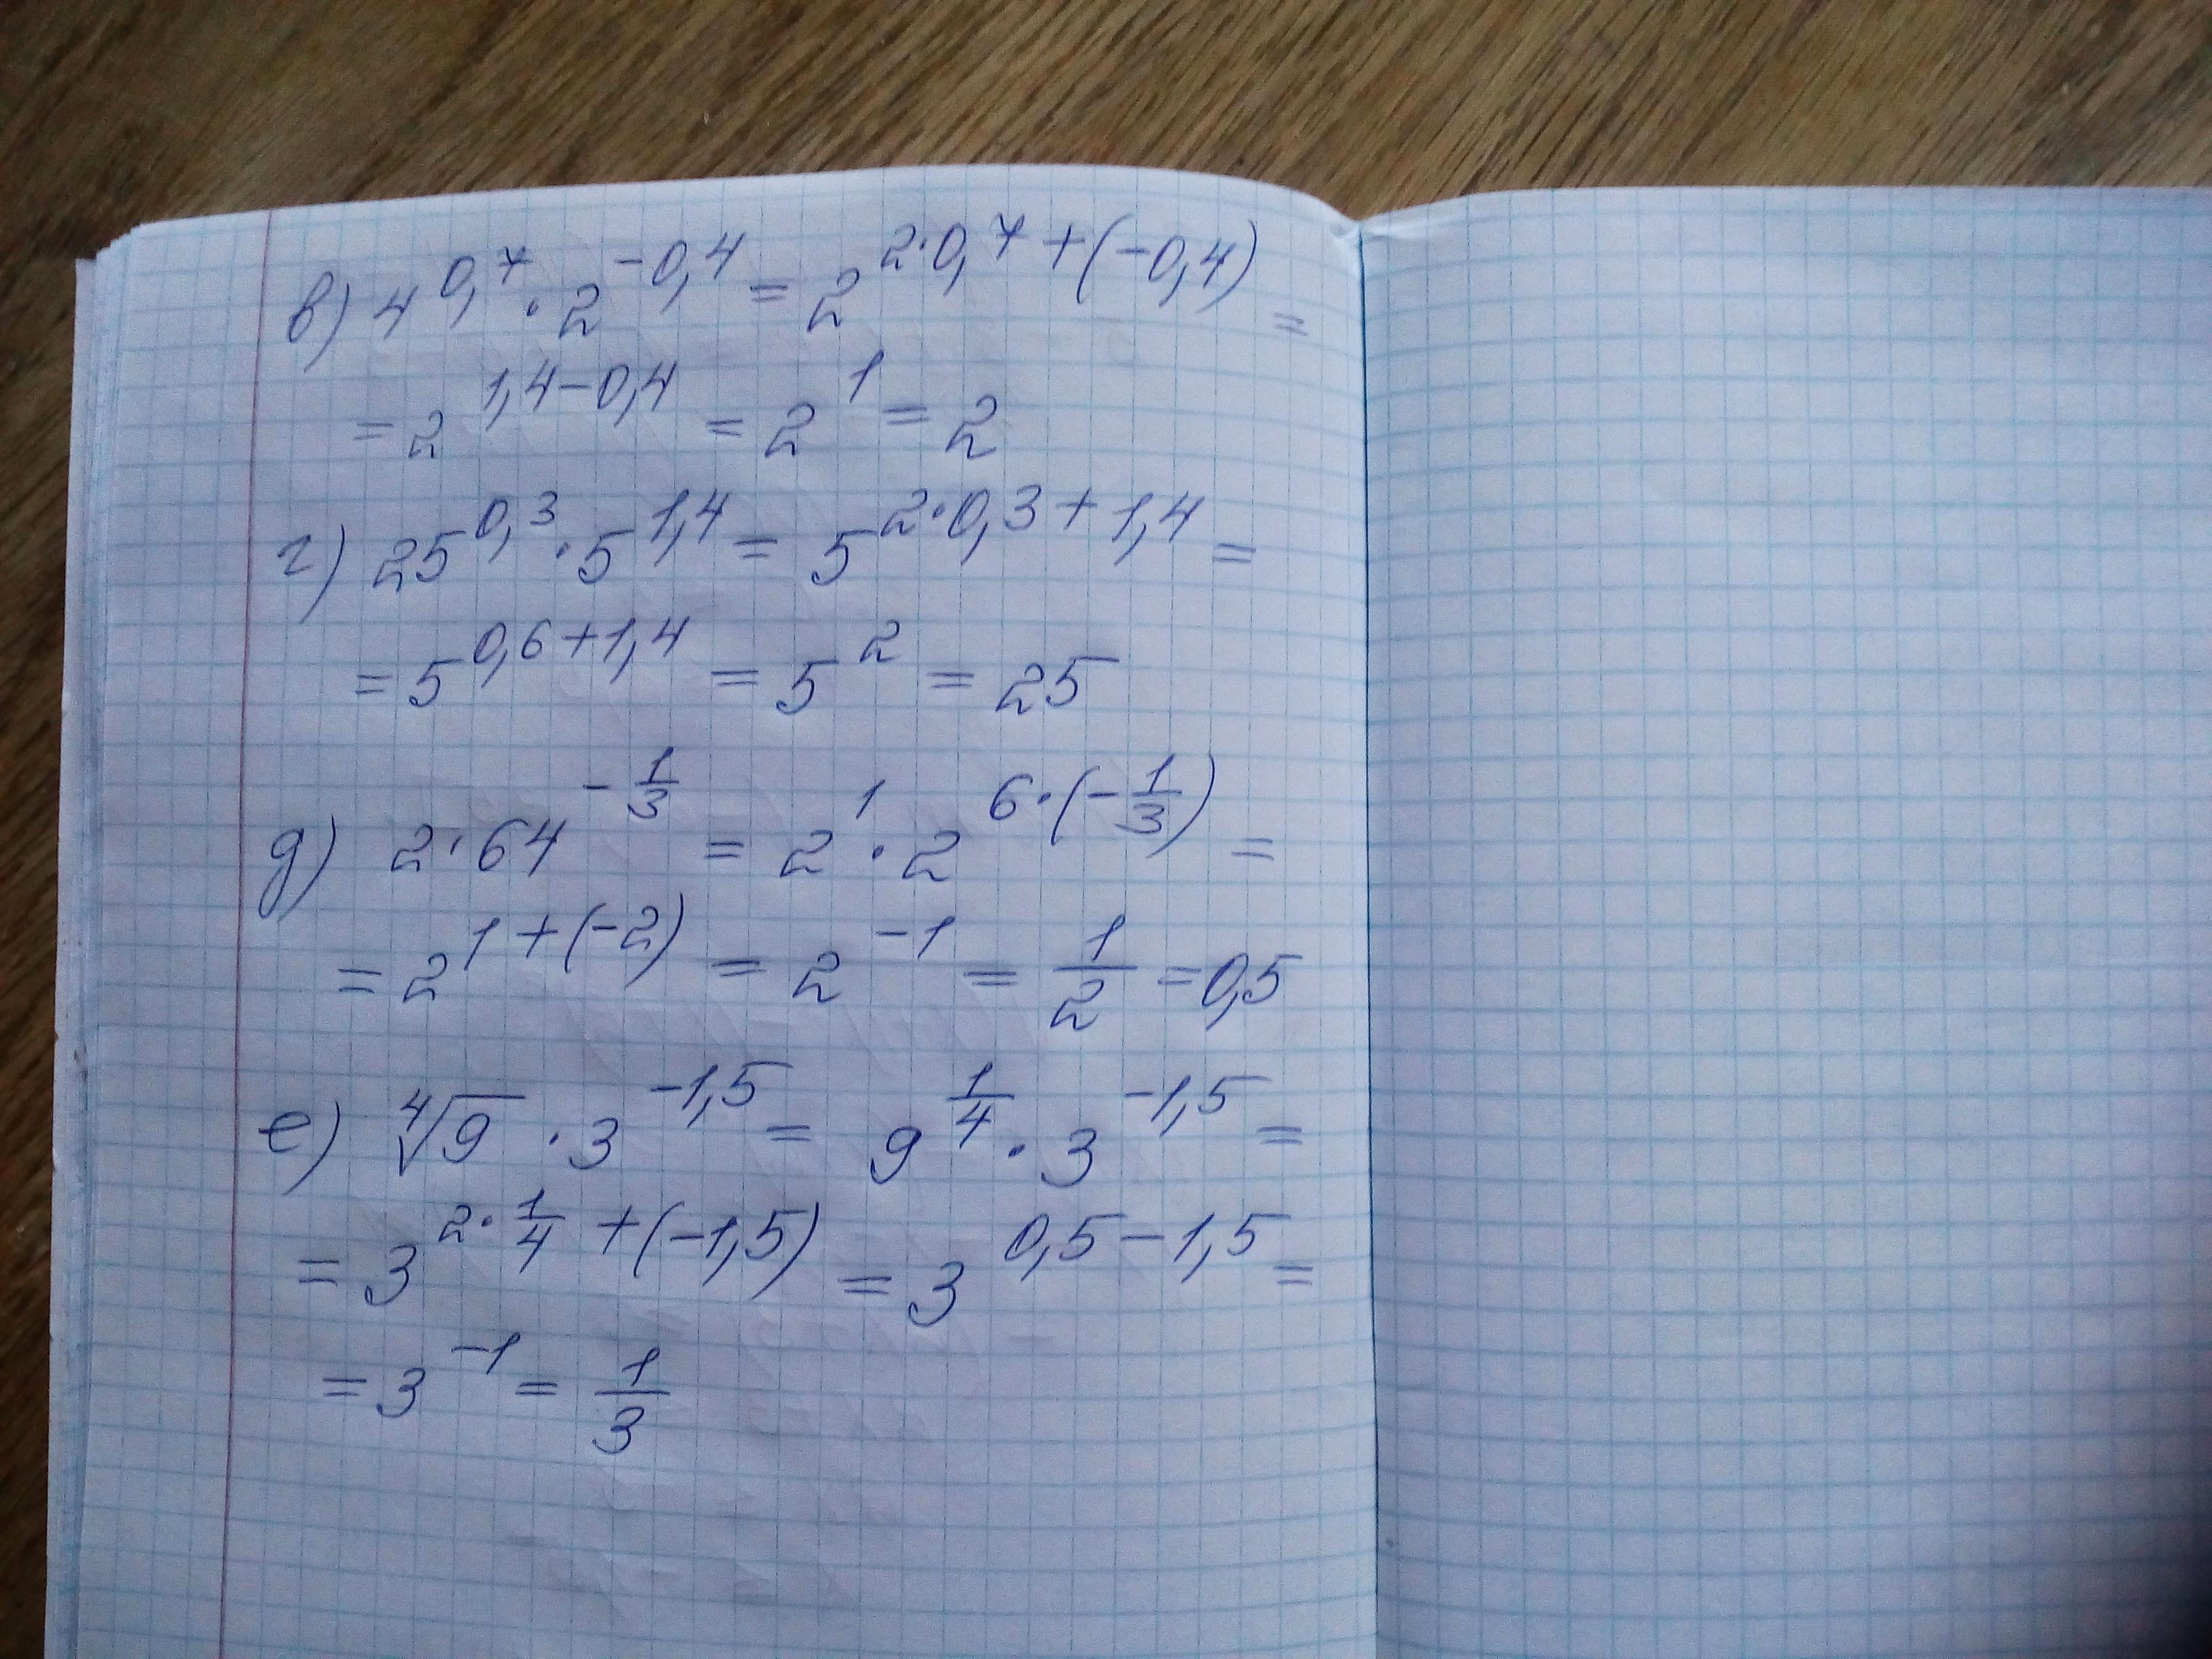 в) 4^{0,7} · 2^{-0,4} = 2^{2·0,7+(-0,4)} =
= 2^{1,4-0,4} = 2^1 = 2
г) 25^{0,3} · 5^{1,4} = 5^{2·0,3+1,4} =
= 5^{0,6+1,4} = 5^2 = 25
д) 2·64^{-\frac{1}{3}} = 2^1 · 2^{6·(-\frac{1}{3})} =
= 2^{1+(-2)} = 2^{-1} = \frac{1}{2} = 0,5
е) \sqrt[4]{9} · 3^{-1,5} = 9^{\frac{1}{4}} · 3^{-1,5} =
= 3^{2·\frac{1}{4}+(-1,5)} = 3^{0,5-1,5} =
= 3^{-1} = \frac{1}{3}